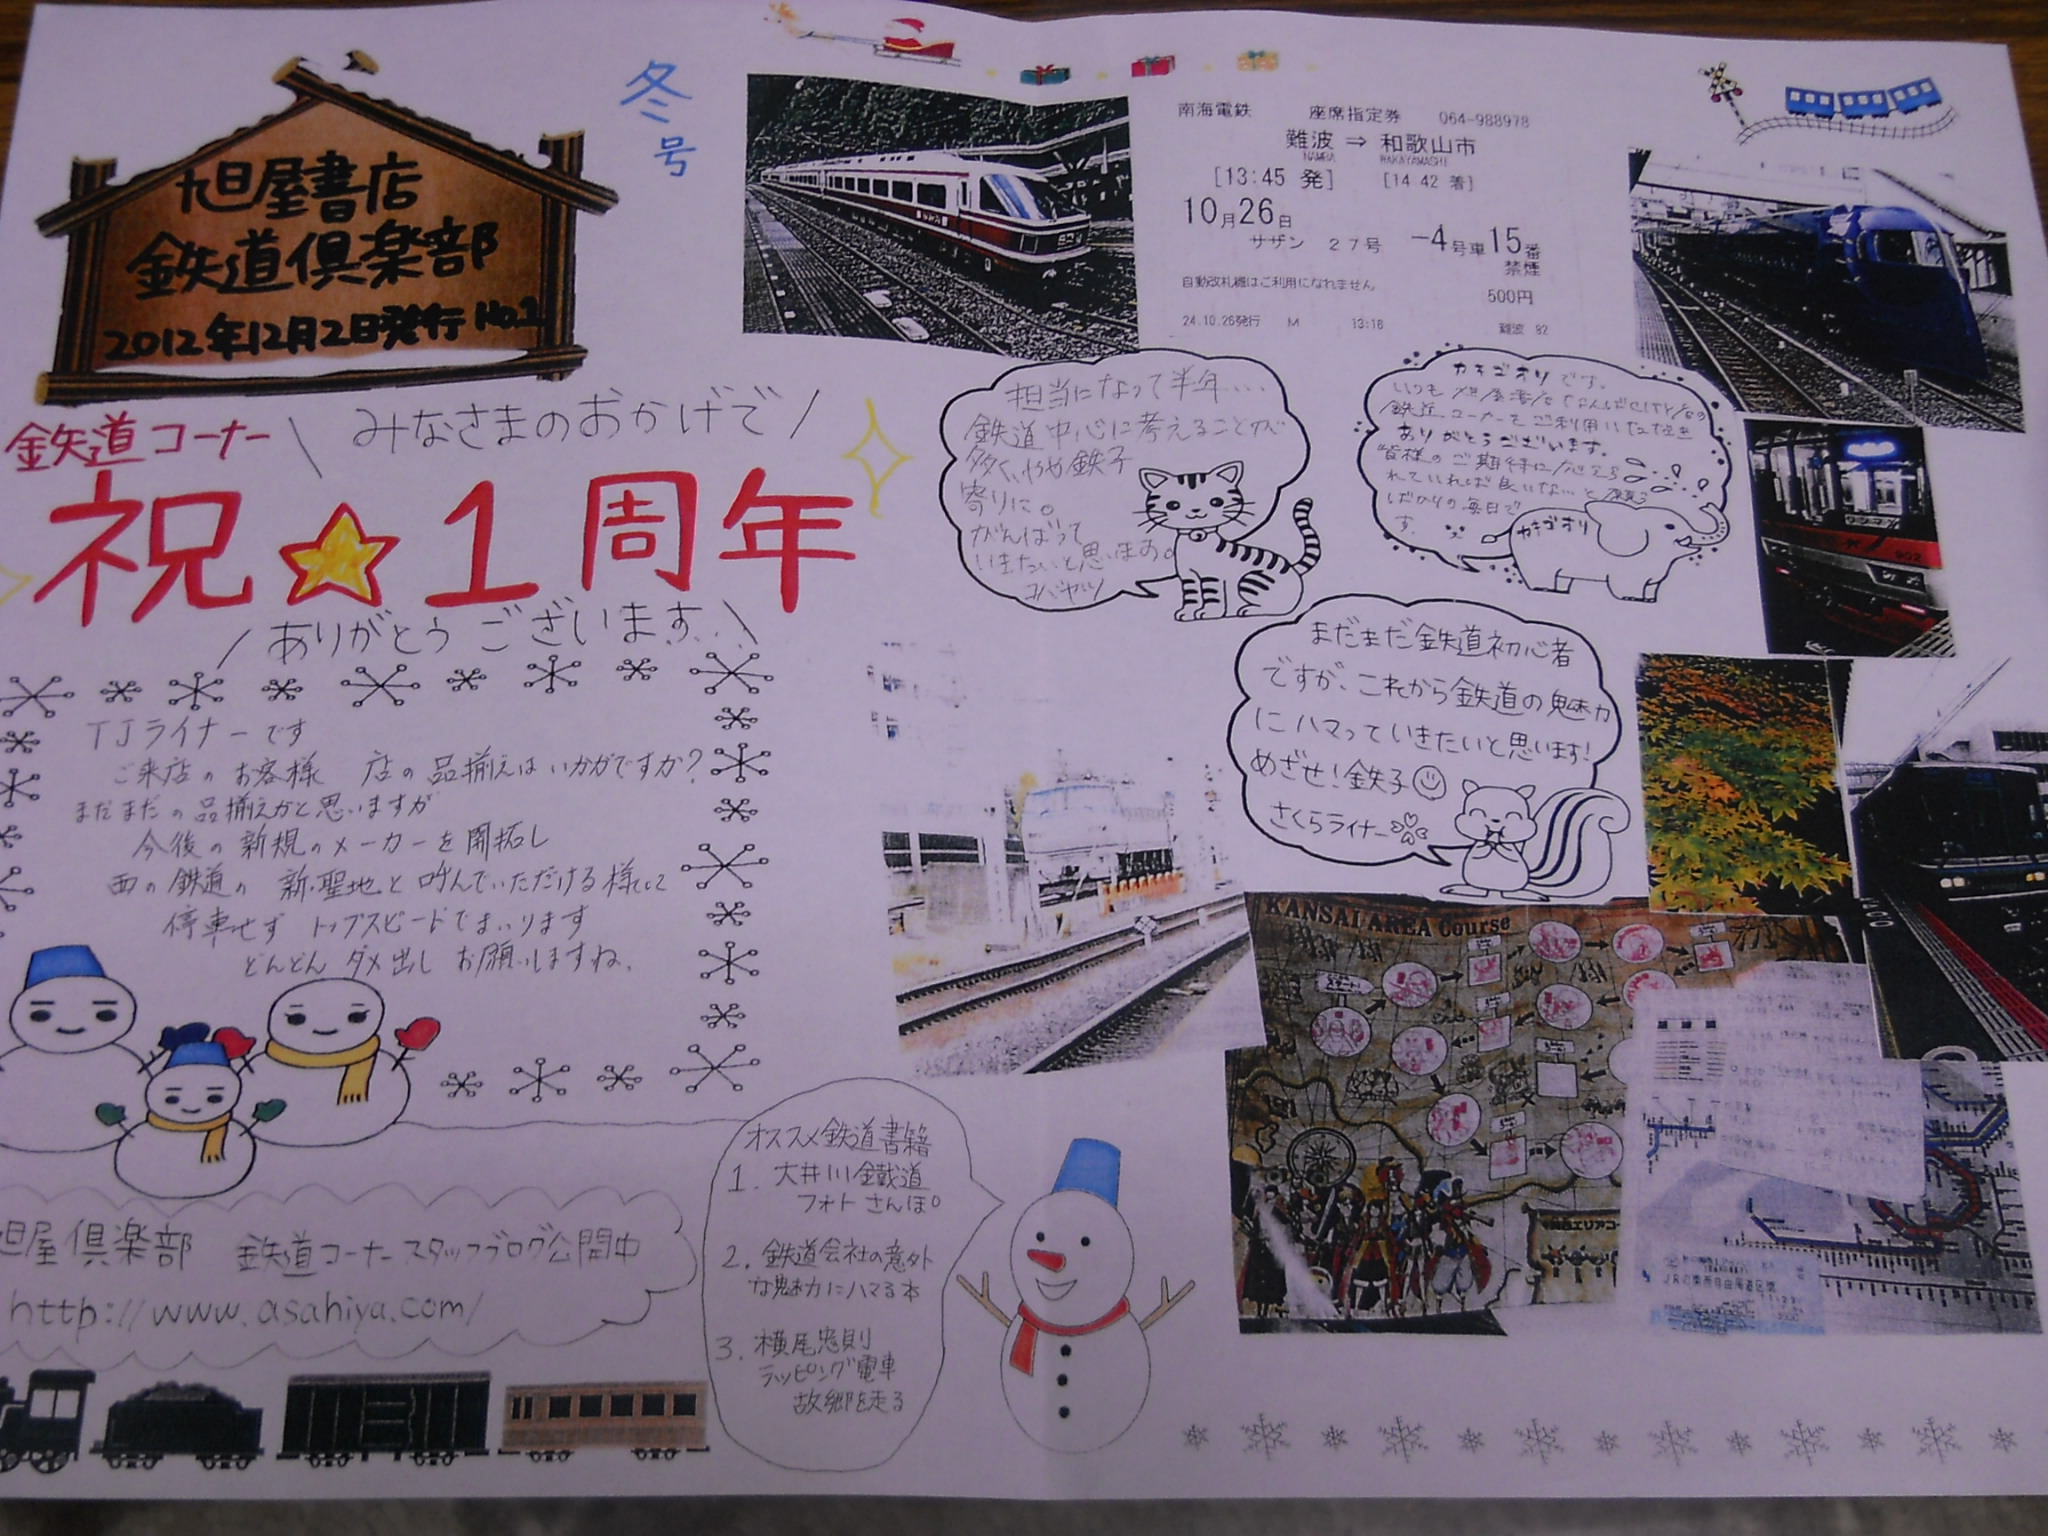 旭屋書店
鉄道倶楽部
2012年12月2日発行 No.1
冬号
南海電鉄 座席指定券 064-988978
難波 ⇒ 和歌山市
NAMBA WAKAYAMASHI
[13:45 発] [14 42 着]
10月26日
サザン 27号 -4号車15番
禁煙
自動改札機はご利用になれません
500円
24.10.26発行 M 13:16 難波 82
鉄道コーナー
みなさまのおかげで
祝☆1周年
ありがとうございます
担当になって半年…
鉄道中心に考えることが
多くいやや鉄子
寄りに。
がんばって
いきたいと思います。
コバヤシ
カキゴオリです。
鉄道コーナーをご利用いただき
ありがとうございます。
皆様のご期待に応えら
れていれば良いな…と願う
ばかりの毎日で
す。
カキゴオリ
まだまだ鉄道初心者
ですが、これから鉄道の魅力
にハマっていきたいと思います!
めざせ!鉄子
さくらライナー
TJライナーです
ご来店のお客様 店の品揃えはいかがですか?
まだまだの品揃えかと思いますが
今後の新規のメーカーを開拓し
西の鉄道の 新・聖地と呼んでいただける様にして
停車せず トップスピードでまいります
どんどん ダメ出し お願いしますね。
KANSAI AREA Course
オススメ鉄道書籍
1. 大井川鐵道
フォトさんぽ。
2. 鉄道会社の意外
な魅力にハマる本
3. 横尾忠則
ラッピング電車
故郷を走る
旭屋倶楽部 鉄道コーナースタッフブログ公開中
http://www.asahiya.com/